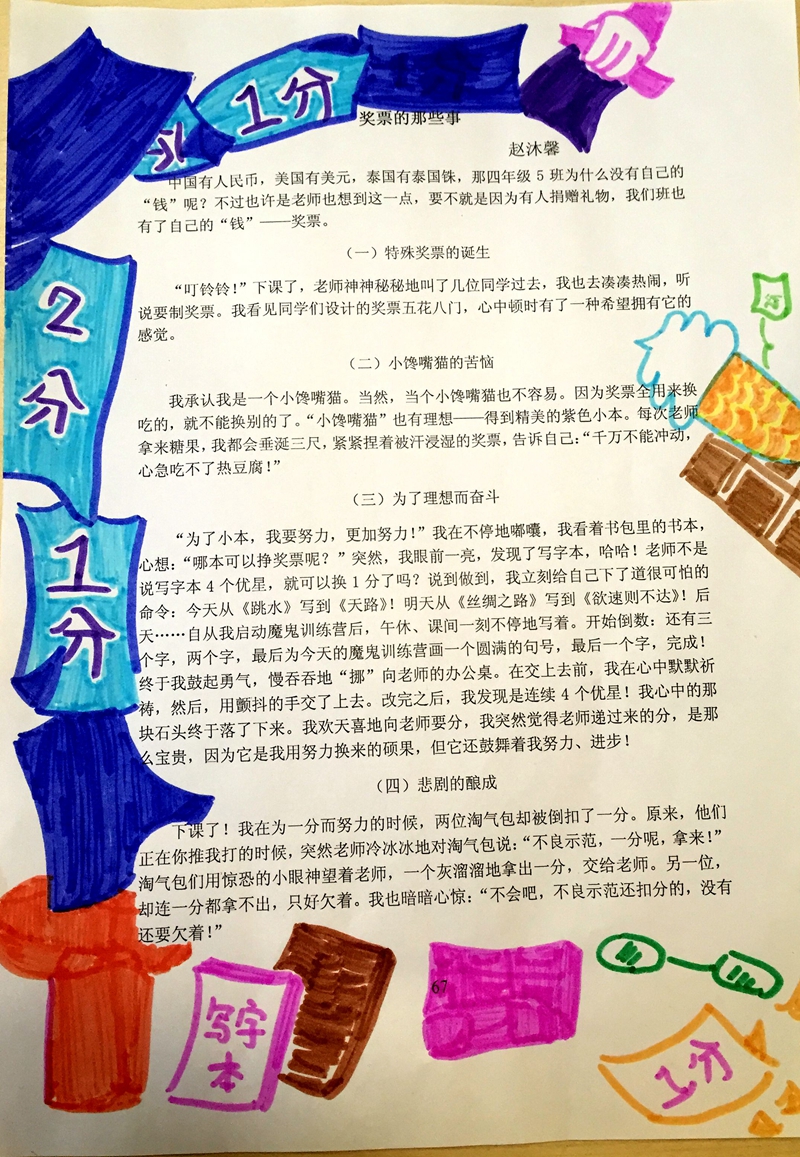 分
1分
1分
奖票的那些事
赵沐馨
中国有人民币，美国有美元，泰国有泰国铢，那四年级5班为什么没有自己的
“钱”呢？不过也许是老师也想到这一点，要不就是因为有人捐赠礼物，我们班也
有了自己的“钱”——奖票。
（一）特殊奖票的诞生
“叮铃铃！”下课了，老师神神秘秘地叫了几位同学过去，我也去凑凑热闹，听
说要制奖票。我看见同学们设计的奖票五花八门，心中顿时有了一种希望拥有它的
感觉。
2分
（二）小馋嘴猫的苦恼
我承认我是一个小馋嘴猫。当然，当个小馋嘴猫也不容易。因为奖票全用来换
吃的，就不能换别的了。“小馋嘴猫”也有理想——得到精美的紫色小本。每次老师
拿来糖果，我都会垂涎三尺，紧紧捏着被汗浸湿的奖票，告诉自己：“千万不能冲动，
心急吃不了热豆腐！”
（三）为了理想而奋斗
“为了小本，我要努力，更加努力！”我在不停地嘟囔，我看着书包里的书本，
心想：“哪本可以挣奖票呢？”突然，我眼前一亮，发现了写字本，哈哈！老师不是
说写字本4个优星，就可以换1分了吗？说到做到，我立刻给自己下了道很可怕的
命令：今天从《跳水》写到《天路》！明天从《丝绸之路》写到《欲速则不达》！后
天……自从我启动魔鬼训练营后，午休、课间一刻不停地写着。开始倒数：还有三
个字，两个字，最后为今天的魔鬼训练营画一个圆满的句号，最后一个字，完成！
终于我鼓起勇气，慢吞吞地“挪”向老师的办公桌。在交上去前，我在心中默默祈
祷，然后，用颤抖的手交了上去。改完之后，我发现是连续4个优星！我心中的那
块石头终于落了下来。我欢天喜地向老师要分，我突然觉得老师递过来的分，是那
么宝贵，因为它是我用努力换来的硕果，但它还鼓舞着我努力、进步！
1分
（四）悲剧的酿成
下课了！我在为一分而努力的时候，两位淘气包却被倒扣了一分。原来，他们
正在你推我打的时候，突然老师冷冰冰地对淘气包说：“不良示范，一分呢，拿来！”
淘气包们用惊恐的小眼神望着老师，一个灰溜溜地拿出一分，交给老师。另一位，
却连一分都拿不出，只好欠着。我也暗暗心惊：“不会吧，不良示范还扣分的，没有
还要欠着！”
67
写字
本
1分